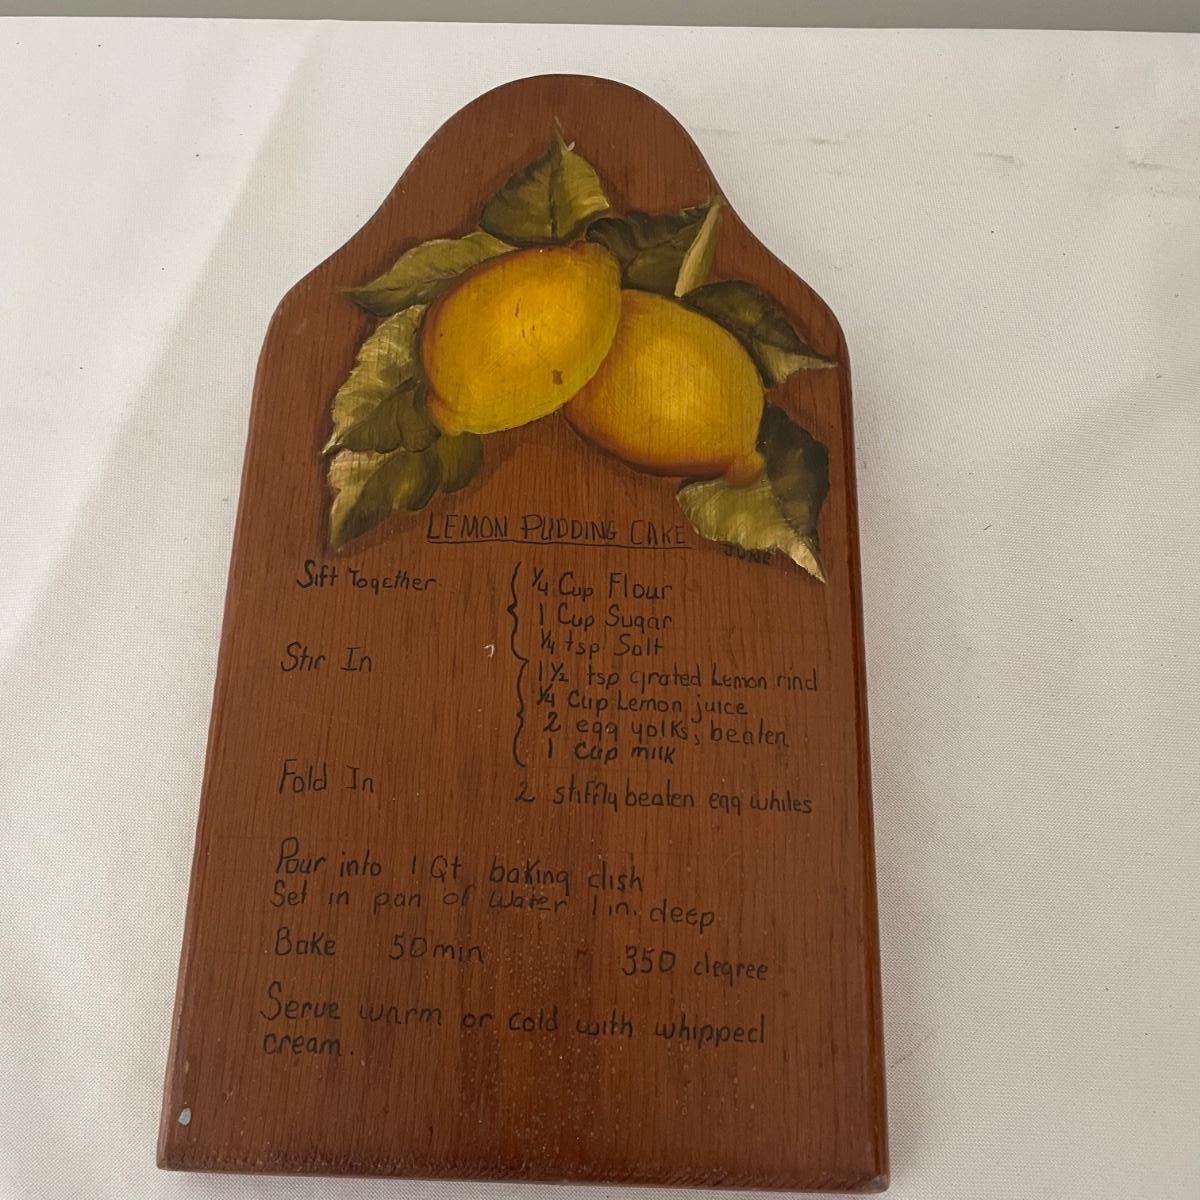 LEMON PUDDING CAKE
JUNE
Sift Together
1/4 Cup Flour
1 Cup Sugar
1/4 tsp Salt
Stir In
1 1/2 tsp grated Lemon rind
1/4 Cup Lemon juice
2 egg yolks, beaten
1 cup milk
Fold In 2 stiffly beaten egg whites
Pour into 1 Qt baking dish
Set in pan of water 1 in. deep
Bake 50 min - 350 degree
Serve warm or cold with whipped
cream.